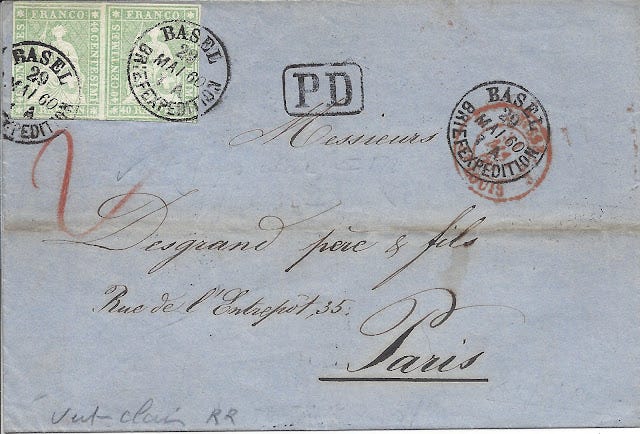 FRANCO FRANCO
CENTIMES CENTIMES
40 R
BASEL
29
MAI 60
A
EXPEDITION
BASEL
29
MAI 60
A
BRIEFEXPEDITION
PD
BASEL
29
MAI 60
A
BRIEFEXPEDITION
2
Messieurs
Desgrand père & fils
Rue de l'Entrepôt, 35.
Paris
Vert-clair RR